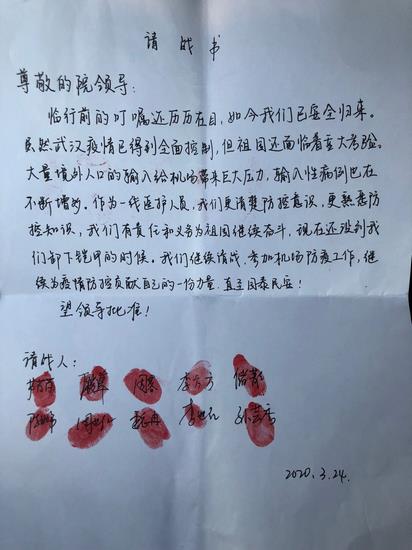 请战书
尊敬的院领导:
临行前的叮嘱还历历在目,如今我们已安全归来。
虽然武汉疫情已得到全面控制,但祖国还面临着重大考验。
大量境外人口的输入给机场带来巨大压力,输入性病例也在
不断增多。作为一线医护人员,我们更清楚防控意识,更熟悉防
控知识,我们有责任和义务为祖国继续奋斗,现在还没到我
们卸下铠甲的时候。我们继续请战,参加机场防疫工作,继
续为疫情防控贡献自己的一份力量,直至国泰民安!
望领导批准!
请战人:
2020.3.24.